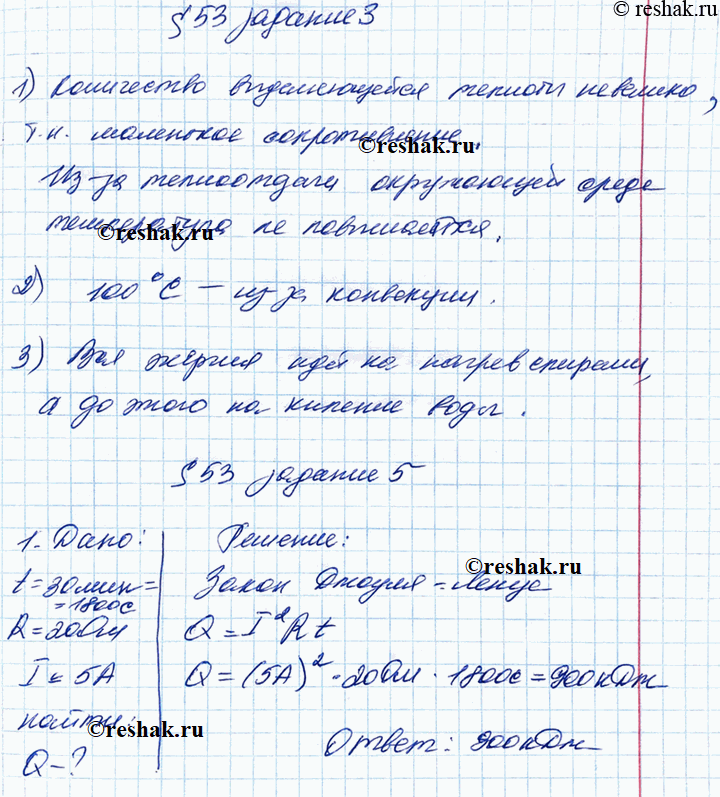 © reshak.ru
§ 53 задание 3
1) Количество выделяющейся теплоты невелико,
т.к. маленькое сопротивление.
©reshak.ru
Из-за теплоотдачи окружающей среде
температура не повышается.
©reshak.ru
2) 100°C — из за конвекции.
3) Вся энергия идёт на нагрев спирали,
а до этого на кипение воды.
§ 53 задание 5
1. Дано: Решение:
©reshak.ru
t = 30 мин = Закон Джоуля - Ленца
= 1800с
R = 20 Ом Q = I²Rt
I = 5А Q = (5А)² · 20 Ом · 1800с = 900 кДж
найти:
©reshak.ru
Ответ: 900 кДж
Q - ?